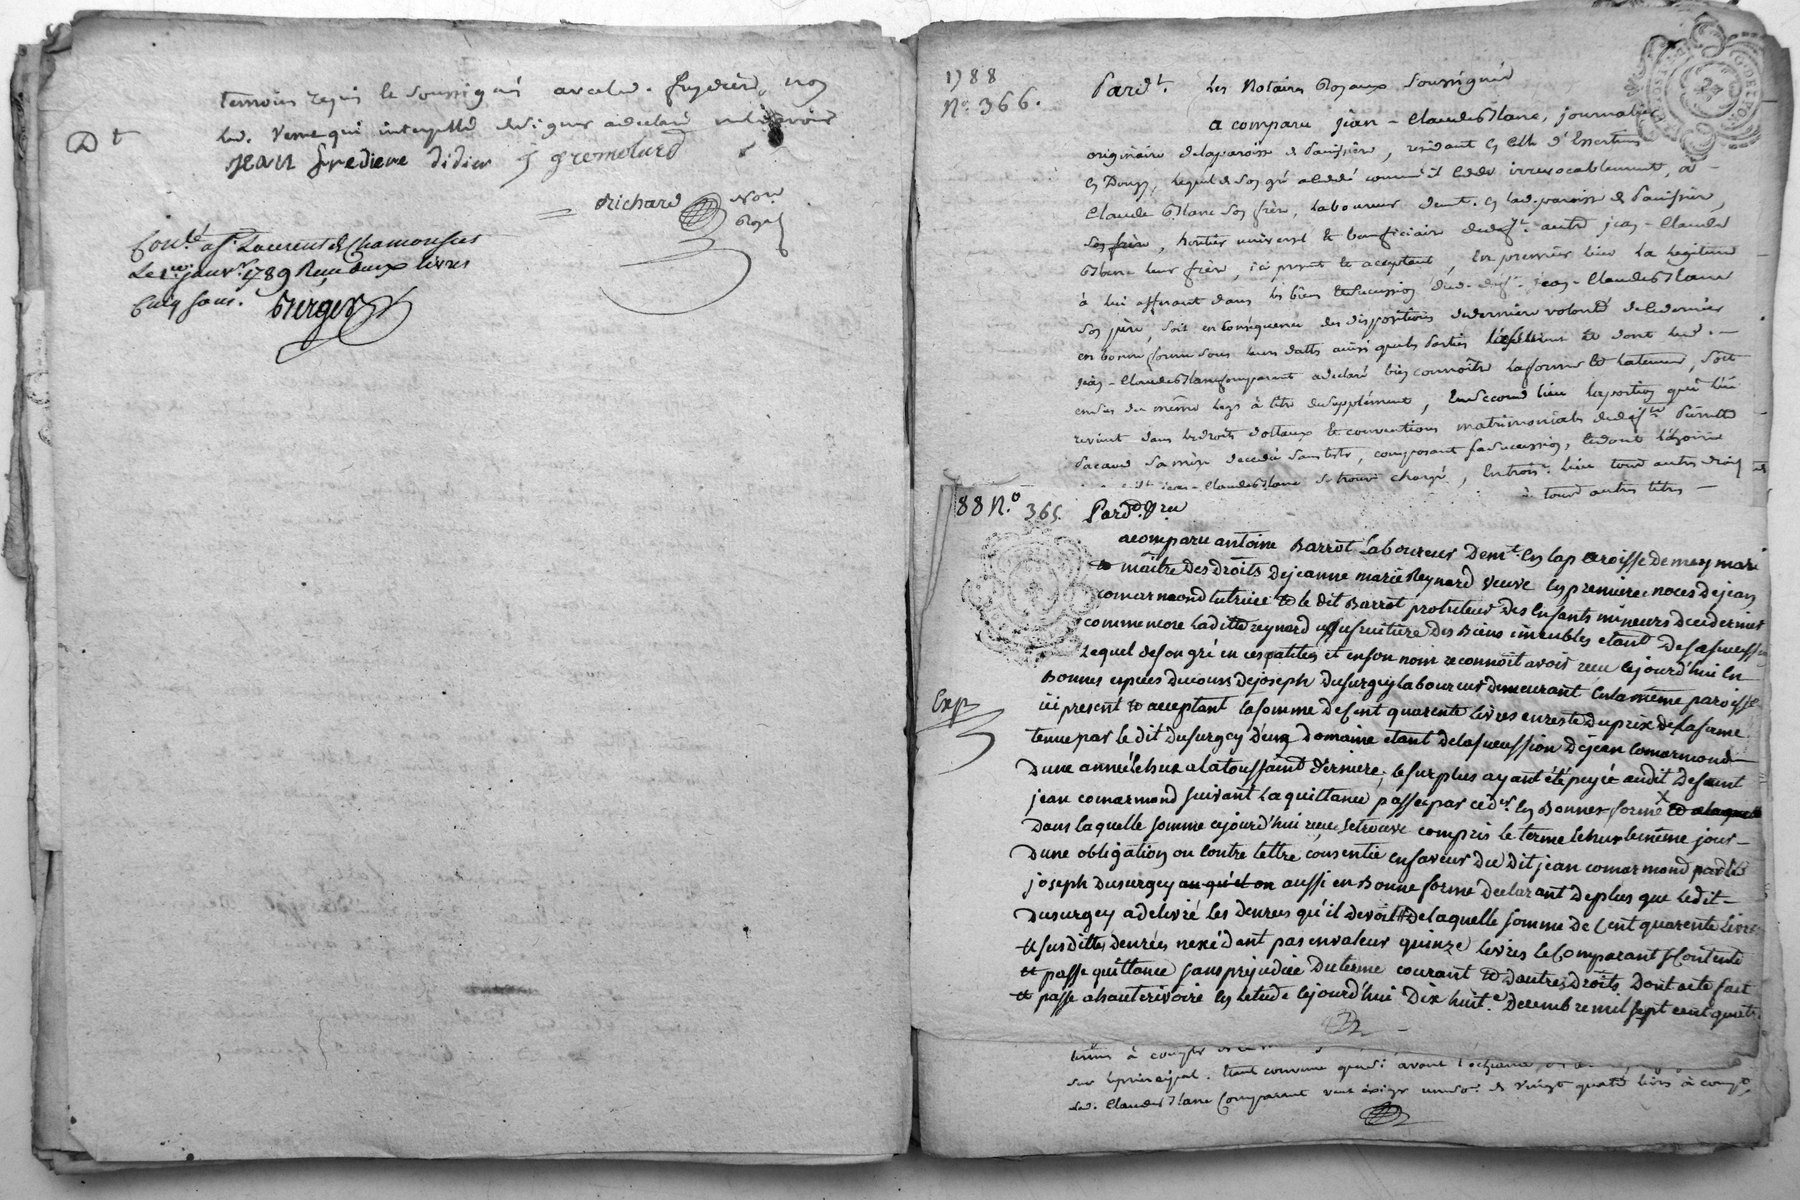 temoins requis le soussignés avec led. fredière, non
lad. verne qui interpellé de signer a declaré ne le savoir
Dt
jean fredière didier j gremolard
richard Nore.
Royal
Contlé. a St. Laurent de Chamousset
Le 1er. janvr. 1789 Reçu deux livres
Cinq sous. Berger
1788
N°. 366.
Pardt. Les Notaires Royaux Soussignés
a comparu jean-Claude Blanc, journalier
originaire de la paroisse de Panissière, residant en celle d'Essertines
en Donzy, lequel de son gré a cedé comme il cede irrevocablement, à
Claude Blanc son frère, laboureur demt. en lad. paroisse de Panissière,
son frère, heritier universel et beneficiaire de deft. autre jean-Claude
Blanc leur frère, ici present et acceptant, En premier lieu la legitime
à lui afferant dans les biens et succession dud. deft. jean-Claude Blanc
son père, soit en consequence des dispositions de dernière volonté de ce dernier
en bonne forme sous leurs dattes ainsi que les parties et dont led.
jean-Claude Blanc comparant a declaré bien connoître la forme et la teneur, soit
encore du même legs à titre de supplément, En second lieu la portion qui lui
revient dans les droits dottaux et conventions matrimoniales de defte. Pierrette
sa mère decedée sans tester, composant sa succession, et dont l'hoirie
jean-Claude Blanc se trouve chargé, En trois. lieu tous autres droits
à tous autres titres
88 N.° 365. Pardt. Nre
a comparu antoine Barrot Laboureur Demt. En la paroisse de meys mari
et maître des droits de jeanne marie Reynard veuve En premieres noces de jean
comarmond tutrice et le dit Barrot protuteur des Enfants mineurs de ce dernier
comme encore La ditte reynard usufruitiere des Biens immeubles etant de sa succession
Lequel de son gré en ces qualités et en son nom reconnoit avoir reçu cejourd'hui En
Bonnes especes du cours de joseph Dusurgey laboureur demeurant En la même paroisse
ici present et acceptant la somme de Cent quarente livres en reste du prix de la ferme
tenue par le dit Dusurgey d'un Domaine etant de la succession de jean Comarmond
Dune année échue a la toussaint derniere, le surplus ayant été payé audit Defunt
Exp.
jean comarmond suivant La quittance passée par ce der. En Bonne forme X et a laquelle
Dans laquelle somme cejourd'hui reçue se trouve compris le terme échu le même jour
Dune obligation ou Contre lettre consentie en faveur du dit jean comarmond par led
joseph Dusurgey au qu'il on aussi en Bonne forme declarant De plus que ledit
Dusurgey a delivré les denrées qu'il devoit # De laquelle somme de Cent quarente Livres
# susdittes denrées nexédant pas en valeur quinze livres le Comparant se Contente
et passe quittance sans prejudice du terme courant et d'autres Droits Dont acte fait
et passé a hauterivoire En letude cejourd'hui Dix huite. Decembre mil sept cent quatre
termes à compter
sur le principal. Etant convenu que si avant l'echeance
led. Claude Blanc comparant veut exiger une so. de vingt quatre livres à compte,